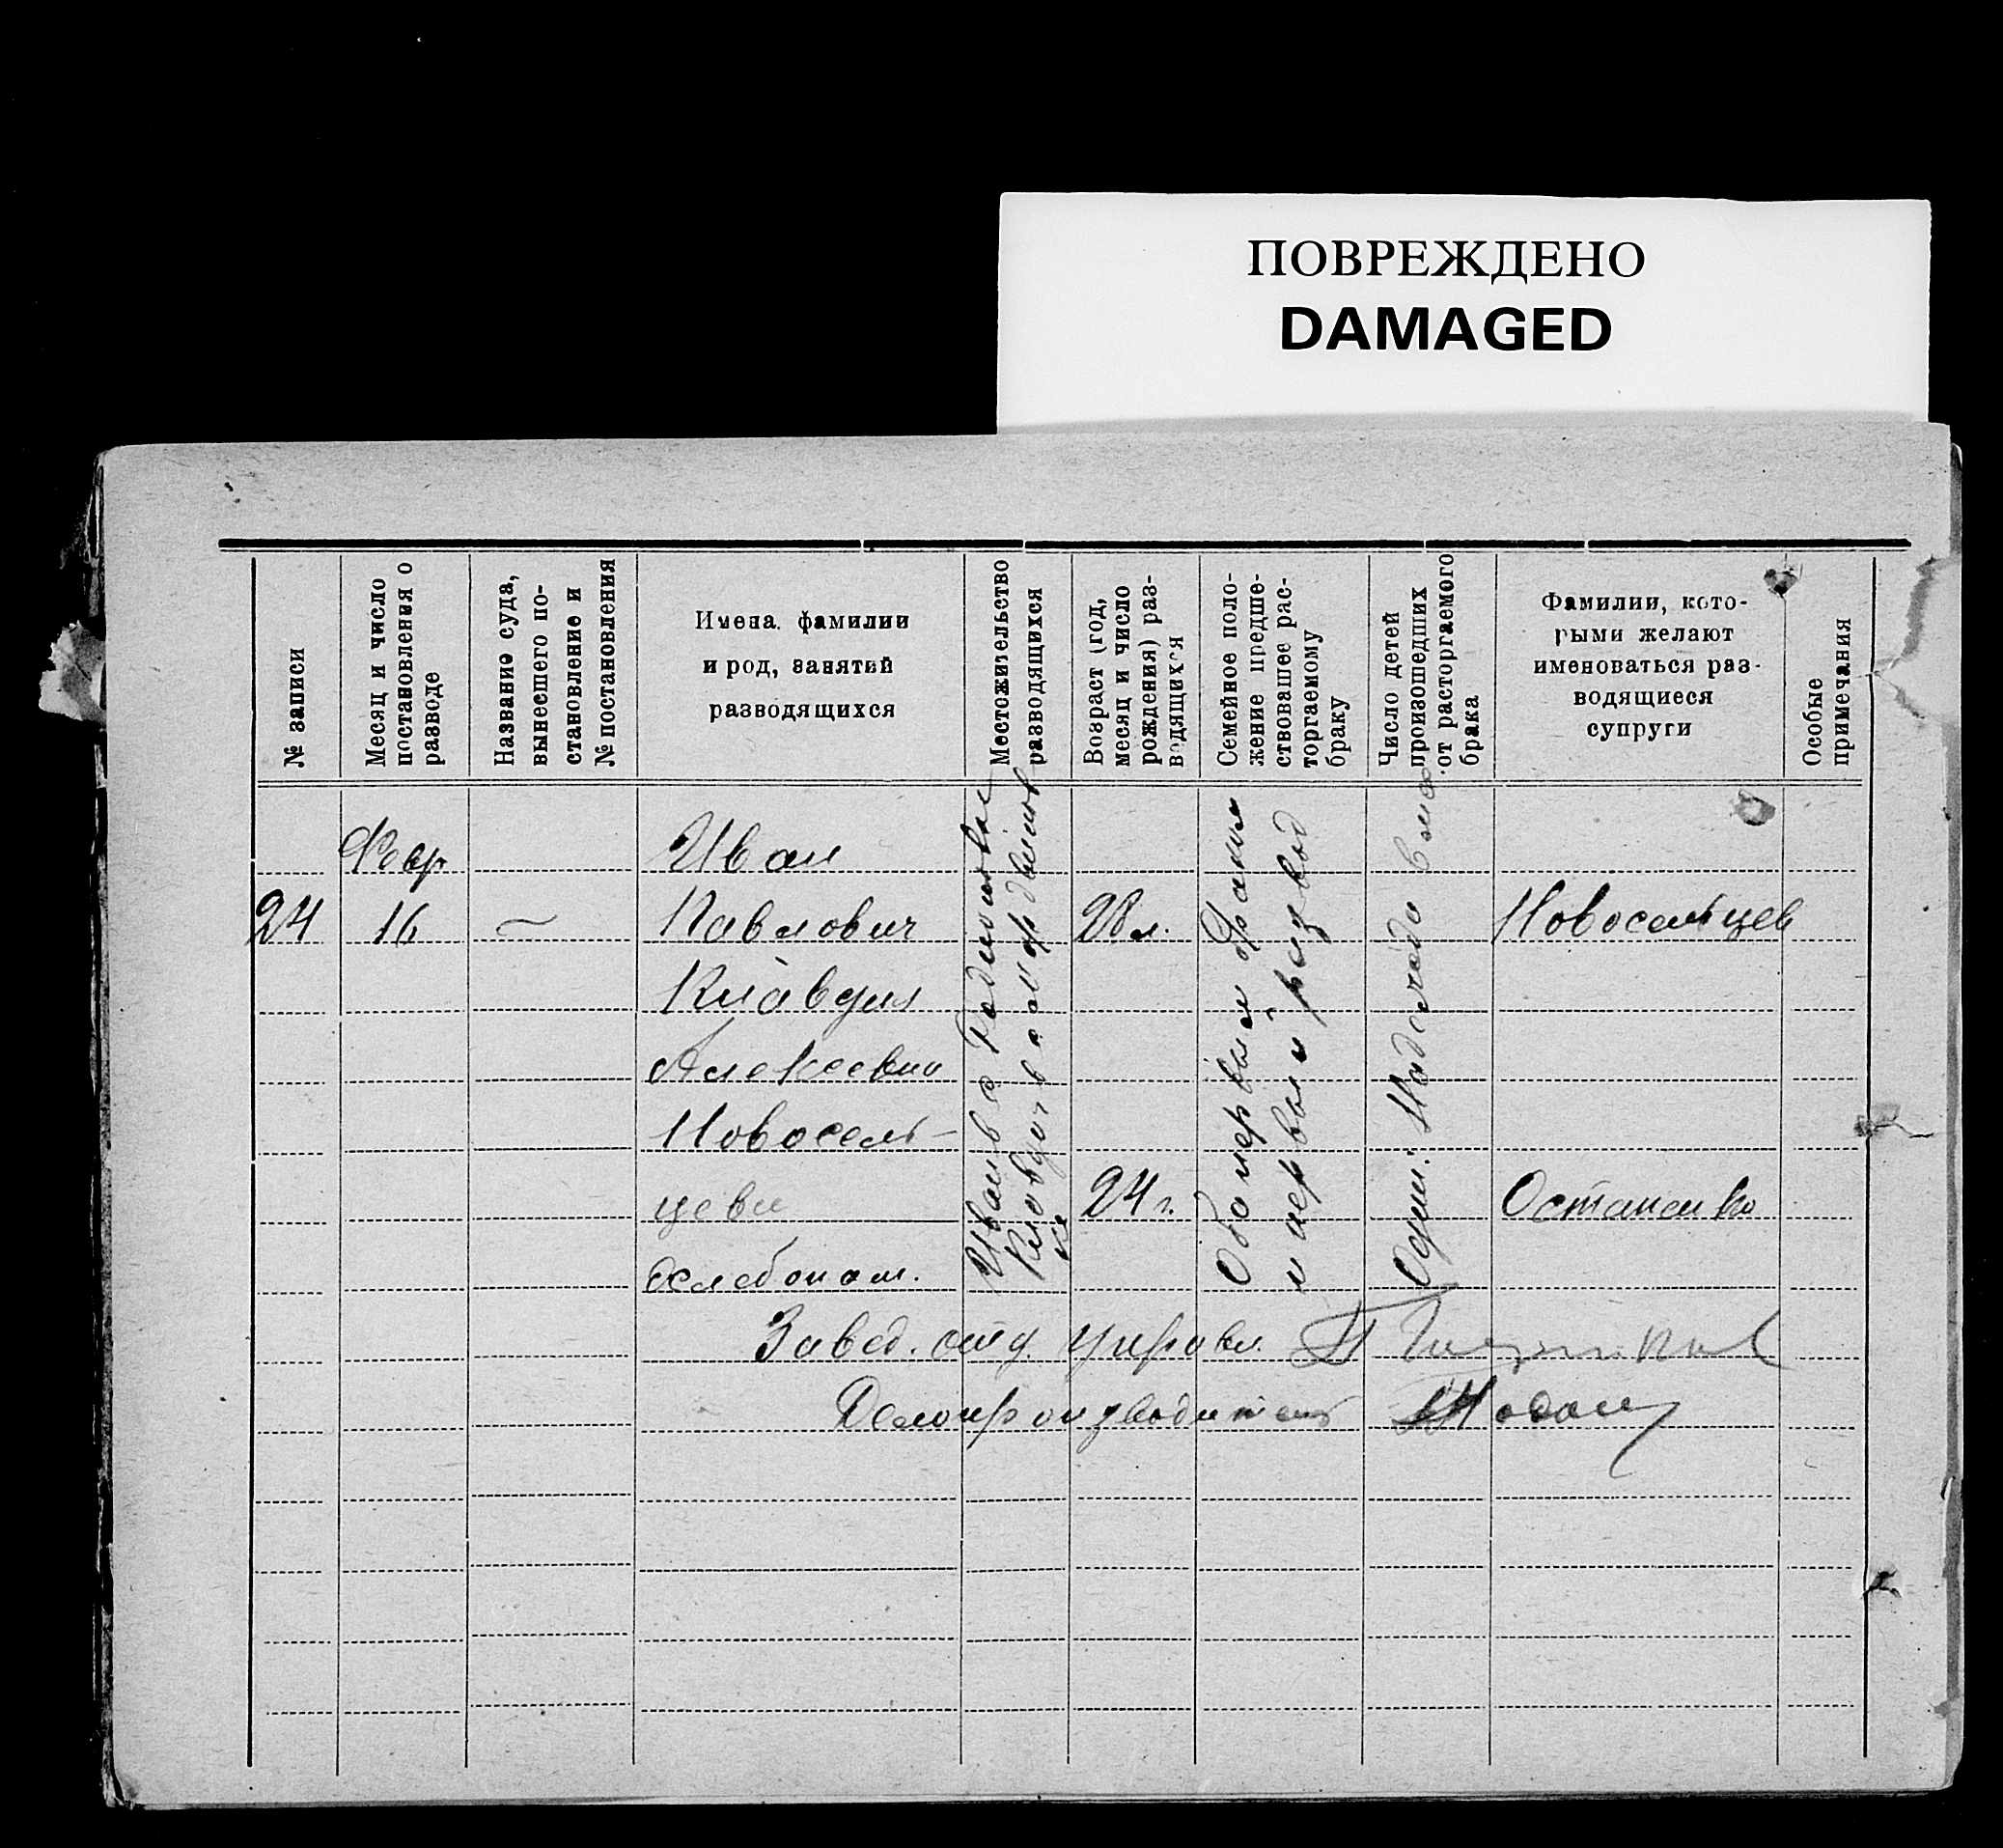 ПОВРЕЖДЕНО
DAMAGED
№ записи
Месяц и число
постановления о
разводе
Название суда,
вынесшего по-
становление и
№ постановления
Имена, фамилии
и род, занятий
разводящихся
Местожительство
разводящихся
Возраст (год,
месяц и число
рождения) раз-
водящихся
Семейное поло-
жение предше-
ствовавшее рас-
торгаемому
браку
Число детей
произошедших
от расторгаемого
брака
Фамилии, кото-
рыми желают
именоваться раз-
водящиеся
супруги
Особые
примечания
24
Февр
16
—
Иван
Павлович
Клавдия
Алексеевна
Новосель-
цевы
хлебопаш.
Иван в с.
Клавдия в
28 л.
24 г.
Оба первым браком
и первый развод
Один.
Новосельцев
Остапенко
Завед. отд. управл.
Делопроизводитель